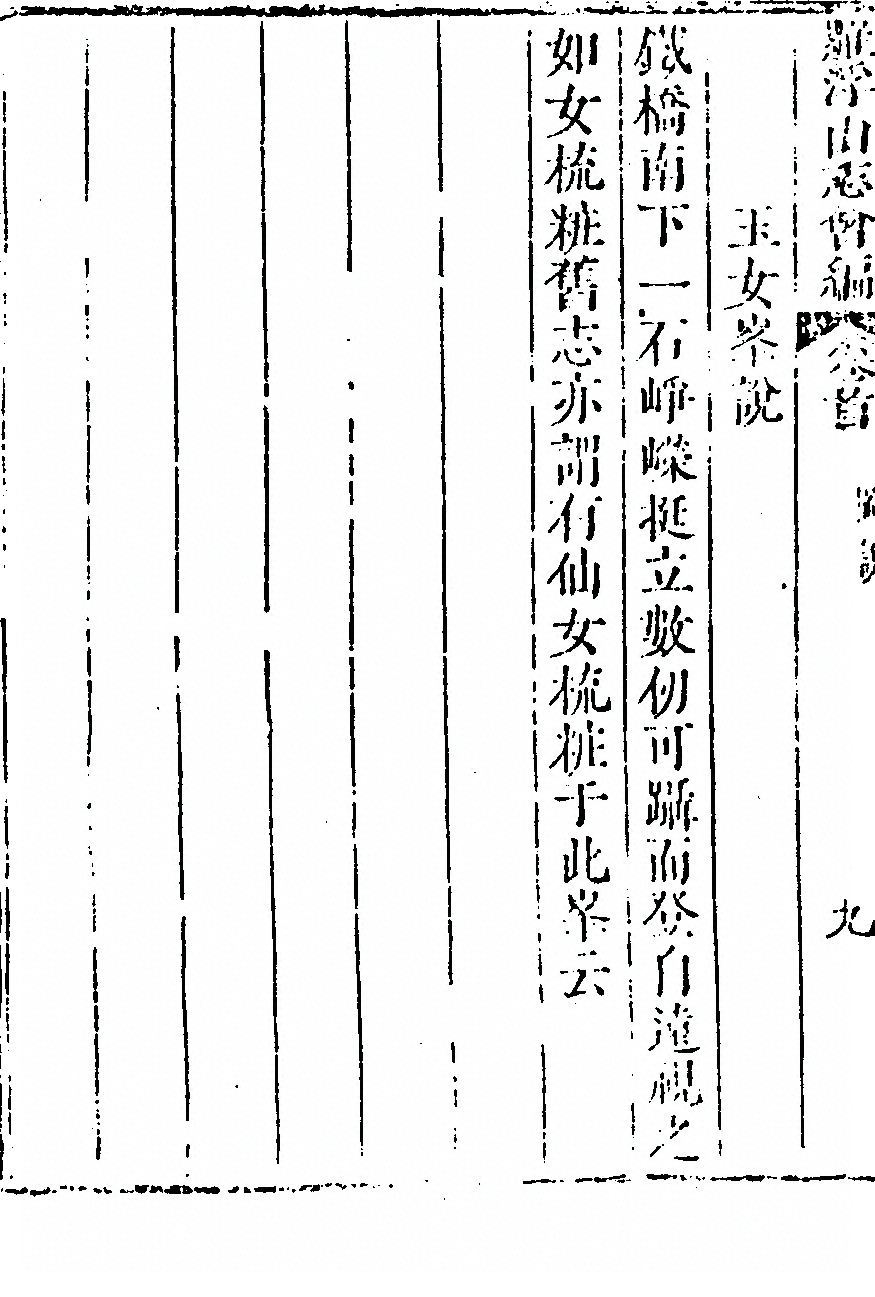 羅浮山志會編 卷首 圖說 九
玉女峯說
鐵橋南下一石崢嶸挺立數仞可躋而登自遠視之
如女梳粧舊志亦謂有仙女梳粧于此峯云